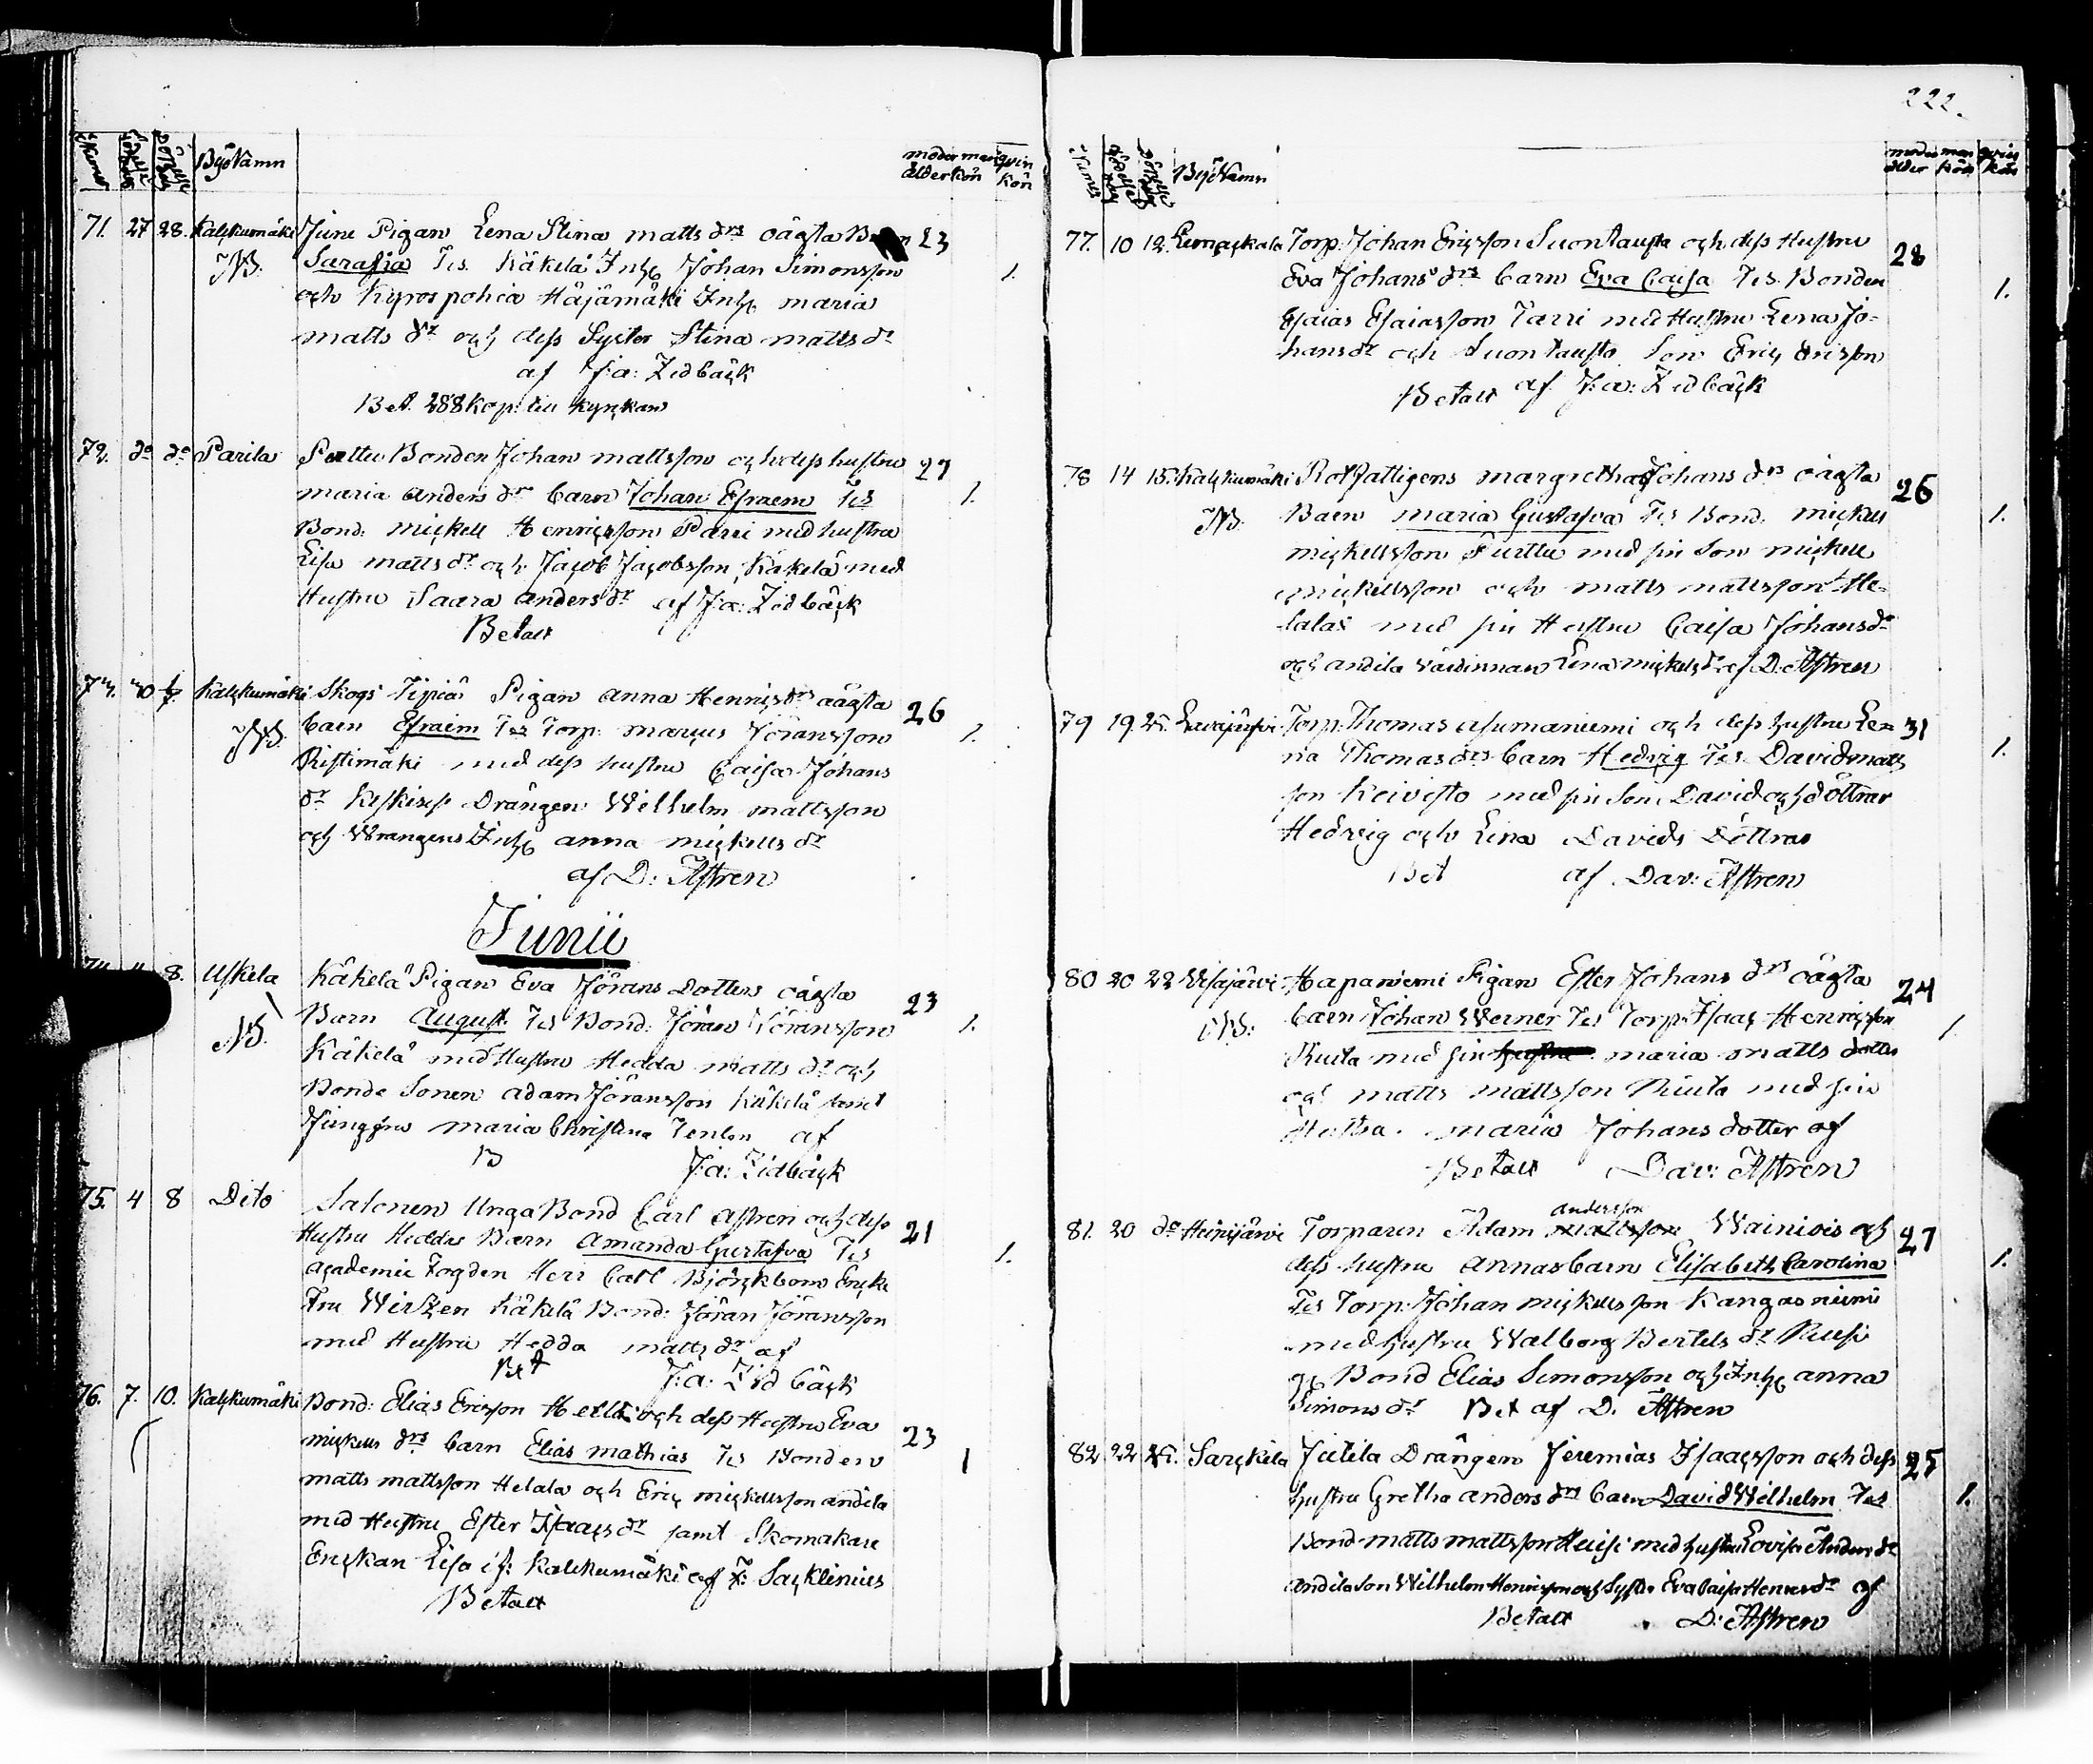 222.
Numer Födelse dag Döpelse dag Byö Namn moder ålder man kön qvin kön
71. 27 28. Kalckumäki Juni Pigan Lena Stina matts drs oägta Barn 23
NB. Serafia Tes. Käkelä Inhs Johan Simonsson 1.
och Kyrospohia Häjämäki Inhs maria
matts dr och dess Syster Stina matts dr
af J:a: Zidbäck
Bet. 288 kop: till kyrckan
72. do do Parila Perttu Bonden Johan mattsson och dess hustru 27
maria anders dr barn Johan Efraem Tes 1.
Bond: mickell Henricsson Parri med hustru
Lisa matts dr och Jacob Jacobsson Käkelä med
Hustru Saara anders dr af J:a: Zidbäck
Betalt
73. 30 Kalckumäki Skogs Pigan anna Henrics drs oägta 26
NB. barn Efraim Tes Torp: marcus Jöransson 1.
Ristimäki med dess hustru Caisa Johans
dr Drängen Wilhelm mattsson
och Wrangens Inhs anna mickells dr
af D: Astren
Junii
8. Uskela Käkelä Pigan Eva Jörans Dotters oägta 23
NB. Barn August Tes Bond: Jöran Jöransson 1.
Käkelä med Hustru Hedda matts dr och
Bonde Sonen adam Jöransson Käkelä samt
Jungfru maria Christina Tenlen af
B J:a: Zidbäck
75. 4 8 Dito Salonen Unga Bond Carl Astren och dess
Hustru Hedda Barn Amanda Gustafva Tes 21
academie Fogden Herr Carl Björckbom Encke 1.
Fru Wirzen Käkelä Bond: Jöran Jöransson
med Hustru Hedda matts dr af
Bet J:a: Zidbäck
76. 7. 10. Kalckumäki Bond: Elias Ericsson och dess Hustru Eva
mickells drs barn Elias mathias Tes Bonden 23
matts mattsson Helala och Eric mickellsson andila 1
med Hustru Ester Isaacs dr samt Skomakare
Enckan Lisa Kalckumäki af F: Sacklinius
Betalt
Numer Födelse dag Döpelse dag Byö Namn moder ålder man kön qvin kön
77. 10 12. Lemackala Torp: Johan Ericsson Suontausta och dess Hustru 28
Eva Johans drs barn Eva Caisa Tes. Bonden 1.
Esaias Esaiasson Tarri med Hustru Lena Jo-
hans dr och Suontausta Son Eric Ericsson
Betalt af J:a: Zidbäck
78 14 15. Kalckumäki Rotfattigens margretha Johans drs oägta 26
NB. Barn maria Gustafva Tes Bond: mickell 1.
mickellsson Purttu med sin Son mickell
mickellsson och matts mattsson He-
lala med sin Hustru Caisa Johans dr
och andila värdinnan Lena mickels dr af D: Astren
79 19 25. Torp: Thomas asumaniemi och dess hustru Le- 31
na Thomas drs barn Hedvig Tes. David matts 1.
son Koivisto med sin Son David och döttrar
Hedvig och Lina Davids Döttrar
Bet af Dav: Astren
80 20 22 Visajärvi Hapaniemi Pigan Ester Johans drs oägta 24
NB: barn Johan Werner Tes Torp: Isaac Henricsson 1.
Riuta med sin hustru maria matts dotter
och matts mattsson Riuta med sin
Hustru. maria Johans dotter af
Betalt Dav: Astren
andersson
81. 20 do Heinijärvi Torparen Adam mattsson Wainiois och 27
dess hustru annas barn Elisabeth Carolina 1.
Tes Torp: Johan mickellsson Kangasniemi
med hustru Walborg Bertels dr
Bond Elias Simonsson och Inhs anna
Simons dr Bet af D. Astren
82 22 Sarckila Jutila Drängen Jeremias Isaacsson och dess 25
hustru Gretha anders drs barn David Wilhelm Tes 1.
Bond matts mattsson Heiusi med hustru Lovisa Anders dr
andila son Wilhelm Henricsson och Syster Eva Caisa Henrics dr af
Betalt D: Astren